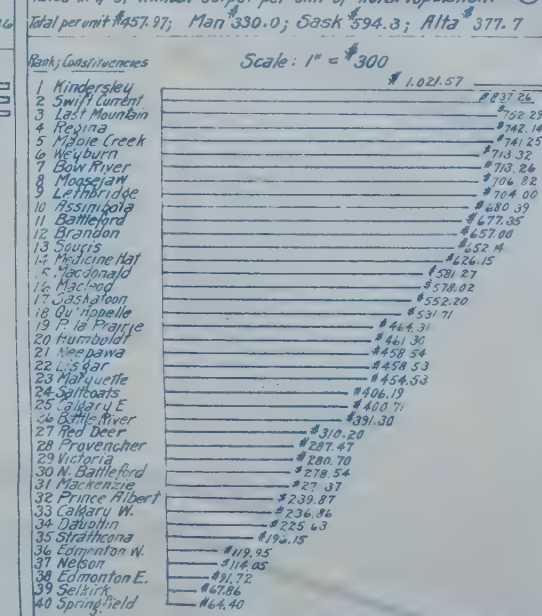 Total per unit $457.97; Man $330.0; Sask $594.3; Alta $377.7
Rank; Constituencies
Scale: 1" = $300
1 Kindersley $1,021.57
2 Swift Current $837.26
3 Last Mountain $752.29
4 Regina $742.14
5 Maple Creek $741.25
6 Weyburn $713.32
7 Bow River $713.26
8 Moosejaw $706.82
9 Lethbridge $704.00
10 Assiniboia $680.39
11 Battleford $677.35
12 Brandon $657.00
13 Souris $652.14
14 Medicine Hat $626.15
15 Macdonald $581.27
16 Macleod $578.02
17 Saskatoon $552.20
18 Qu'Appelle $531.71
19 P. la Prairie $464.31
20 Humboldt $461.30
21 Neepawa $458.54
22 Lisgar $458.53
23 Marquette $454.53
24 Saltcoats $406.19
25 Calgary E $400.71
26 Battle River $391.30
27 Red Deer $310.20
28 Provencher $287.47
29 Victoria $280.70
30 N. Battleford $278.54
31 Mackenzie
32 Prince Albert $239.87
33 Calgary W. $236.86
34 Dauphin $225.63
35 Strathcona $196.15
36 Edmonton W. $119.95
37 Nelson $114.05
38 Edmonton E. $91.72
39 Selkirk $67.86
40 Springfield $64.40